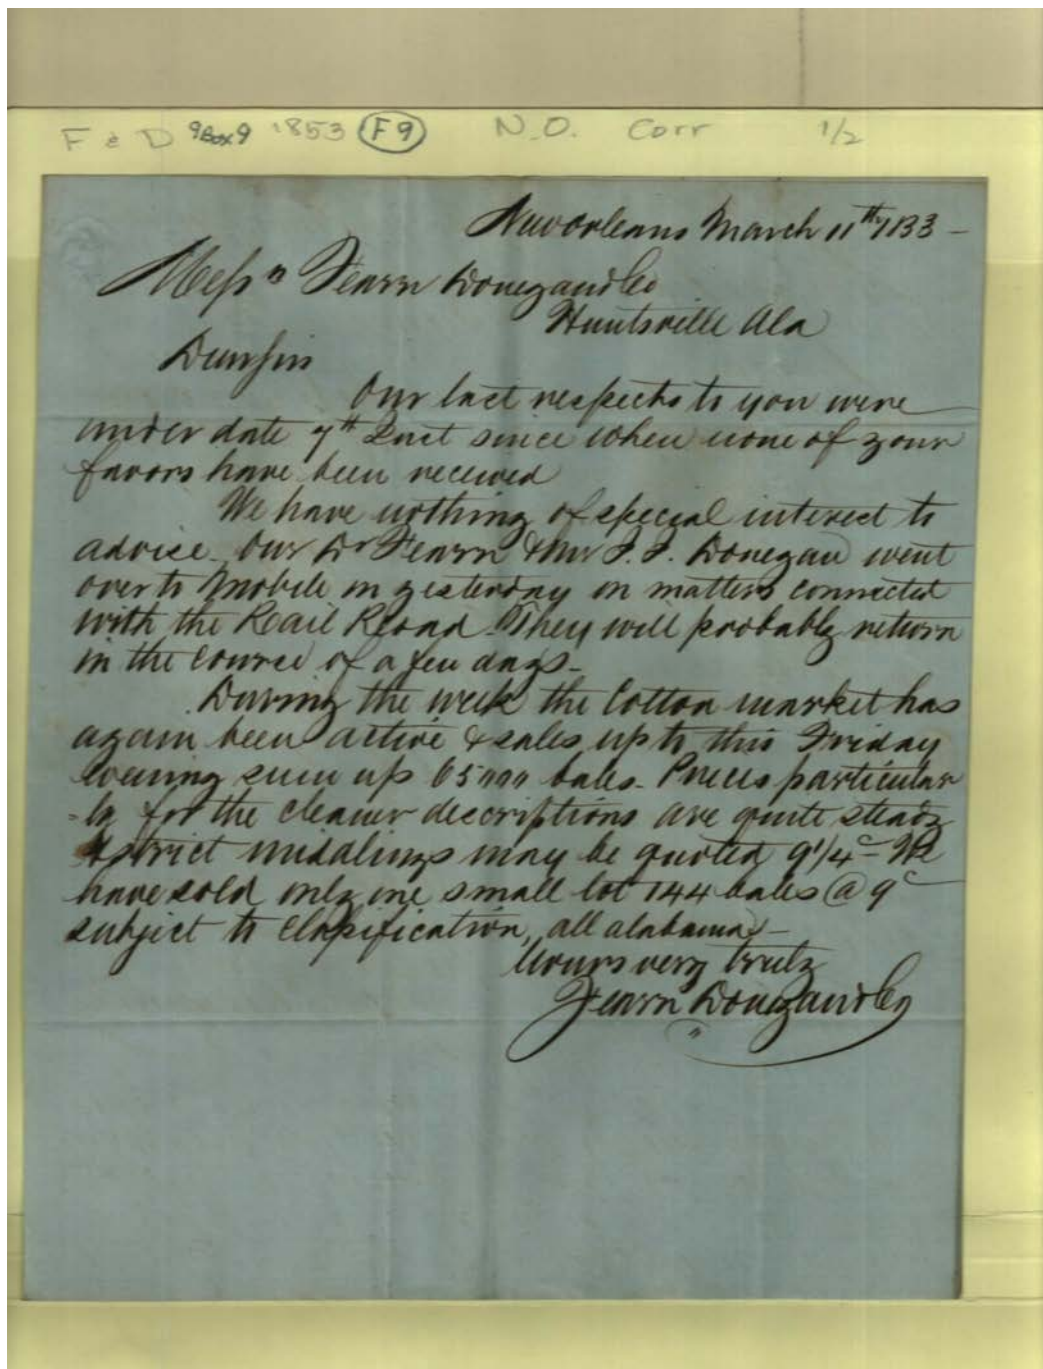 F & D 9Box9 1853 F9 N.O. Corr 1/2
New Orleans March 11th 1853 -
Mess" Fearn Donegan & Co
Huntsville Ala
Dear Sirs
Our last respects to you were
under date 7th Inst since when none of your
favors have been received
We have nothing of special interest to
advise. Our Dr Fearn & Mr J. J. Donegan went
over to Mobile on yesterday on matters connected
with the Rail Road. They will probably return
in the course of a few days -
During the week the Cotton market has
again been active & sales up to this Friday
evening sum up 65"000 bales. Prices particular
-ly for the cleaner descriptions are quite steady
& strict middlings may be quoted 9 1/4c - We
have sold only one small lot 144 bales @ 9c
subject to Classification, all alabama -
Yours very truly
Fearn Donegan & Co